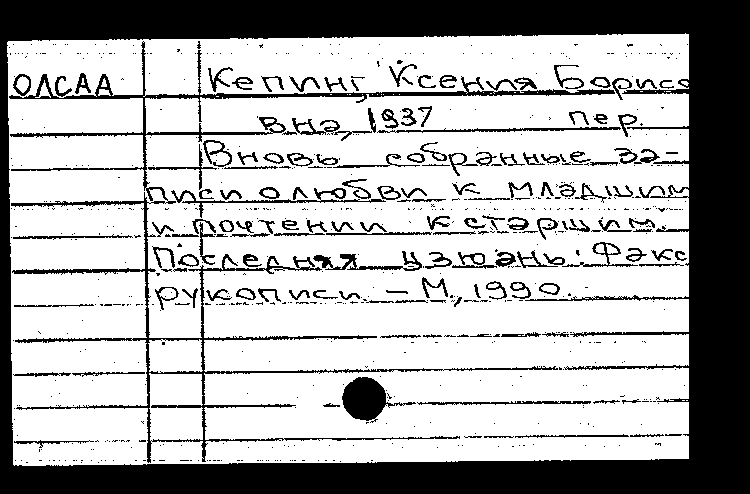 ОЛСАА Кепинг, Ксения Борисо
вна, 1937 пер.
Вновь собранные за-
писи о любви к младшим
и почтении к старшим.
Последняя цзюань: Факс
рукописи. – М., 1990.